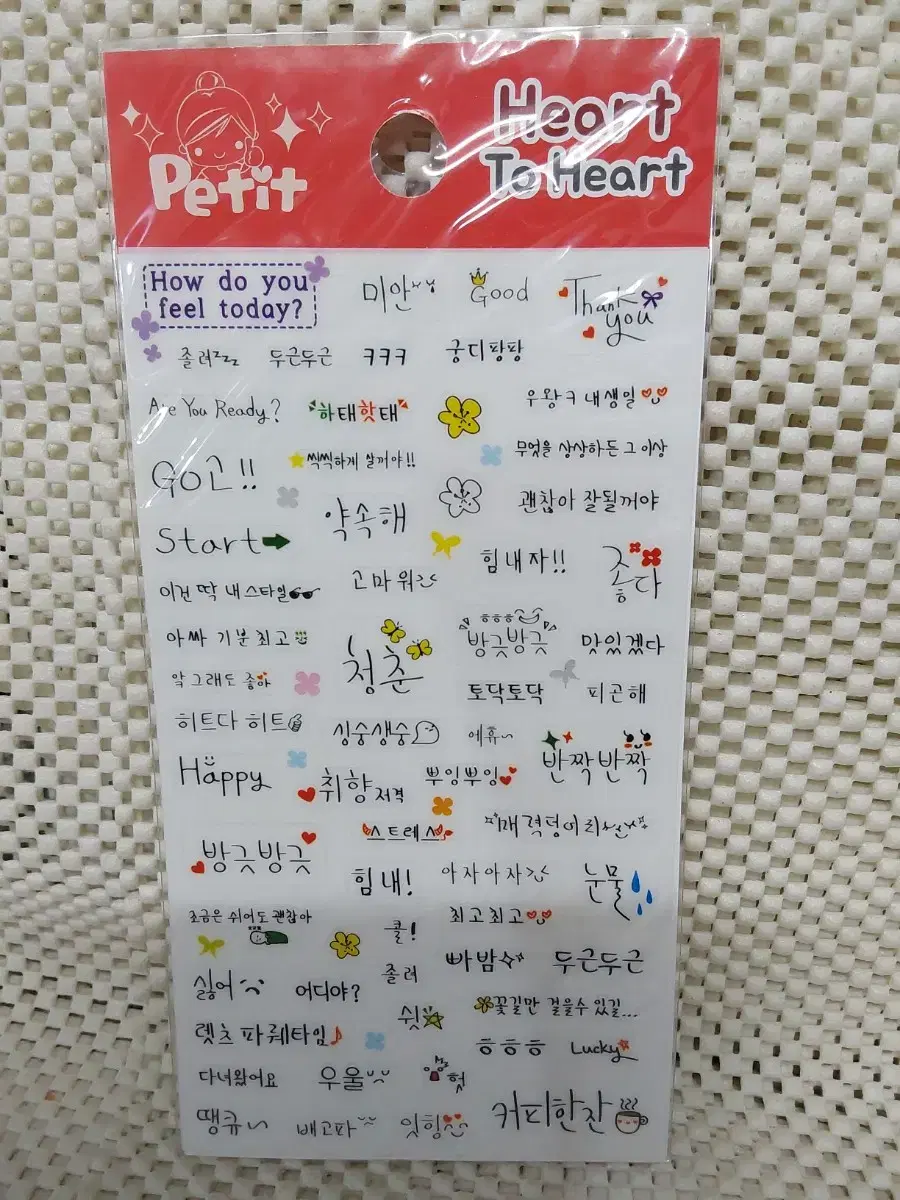 Petit
Heart
To Heart
How do you
feel today?
미안
Good
Thank
you
졸려zzz
두근두근
ㅋㅋㅋ
궁디팡팡
Are You Ready?
하태핫태
우왕ㅋ 내생일
GO고!!
씩씩하게 살꺼야!!
무엇을 상상하든 그 이상
약속해
괜찮아 잘될꺼야
Start
힘내자!!
좋다
이건 딱 내스타일
고마워
아싸 기분 최고
청춘
ㅎㅎㅎ
방긋방긋
맛있겠다
악 그래도 좋아
토닥토닥
피곤해
히트다 히트
싱숭생숭
에휴~
반짝반짝
Happy
취향저격
뿌잉뿌잉
스트레스
매력덩어리
방긋방긋
힘내!
아자아자
눈물
조금은 쉬어도 괜찮아
쿨!
최고최고
싫어
어디야?
졸려
빠밤
두근두근
쉿
꽃길만 걸을수 있길...
렛츠 파뤠타임
ㅎㅎㅎ
Lucky
다녀왔어요
우울
헛
땡큐~
배고파
잇힝
커피한잔